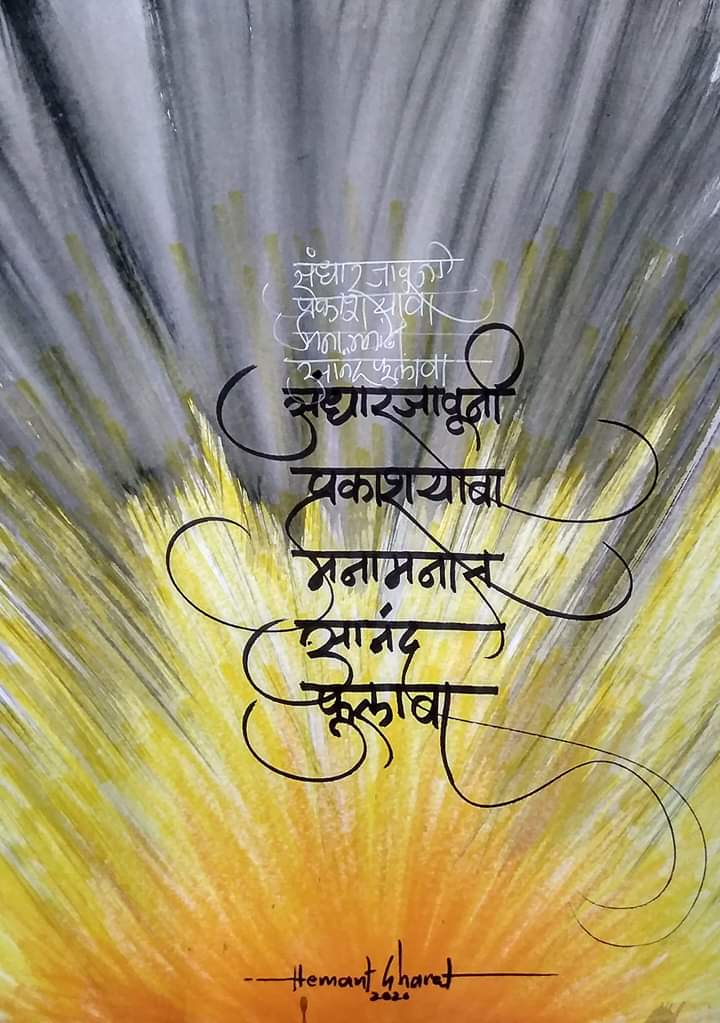 अंधार जावूनी
प्रकाश यावा
मनामनांत
आनंद फूलावा
अंधार जावूनी
प्रकाश यावा
मनामनांत
आनंद
फूलावा
Hemant Gharat
2020